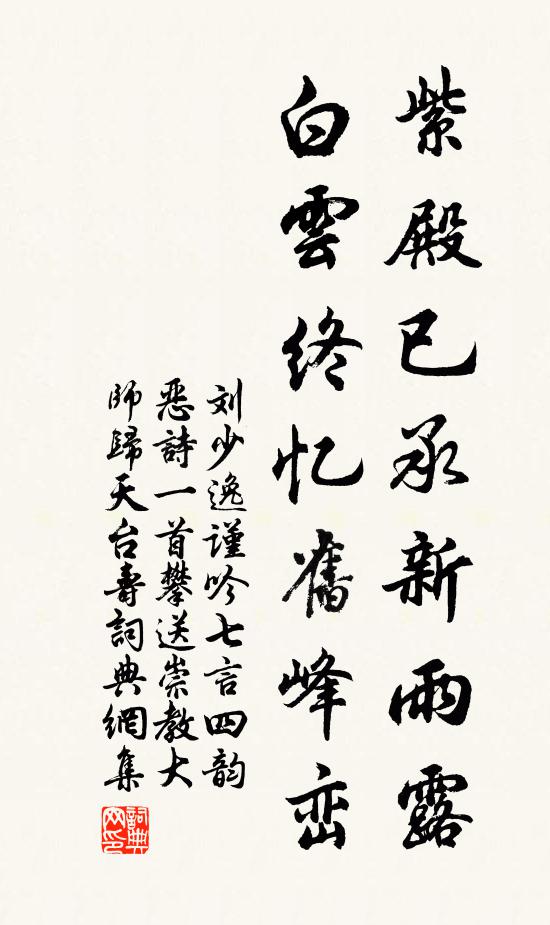 紫殿已承新雨露
白雲终忆舊峰峦
刘少逸谨吟七言四韵
恶詩一首攀送崇教大
師歸天台壽詞典網集
詞典网印